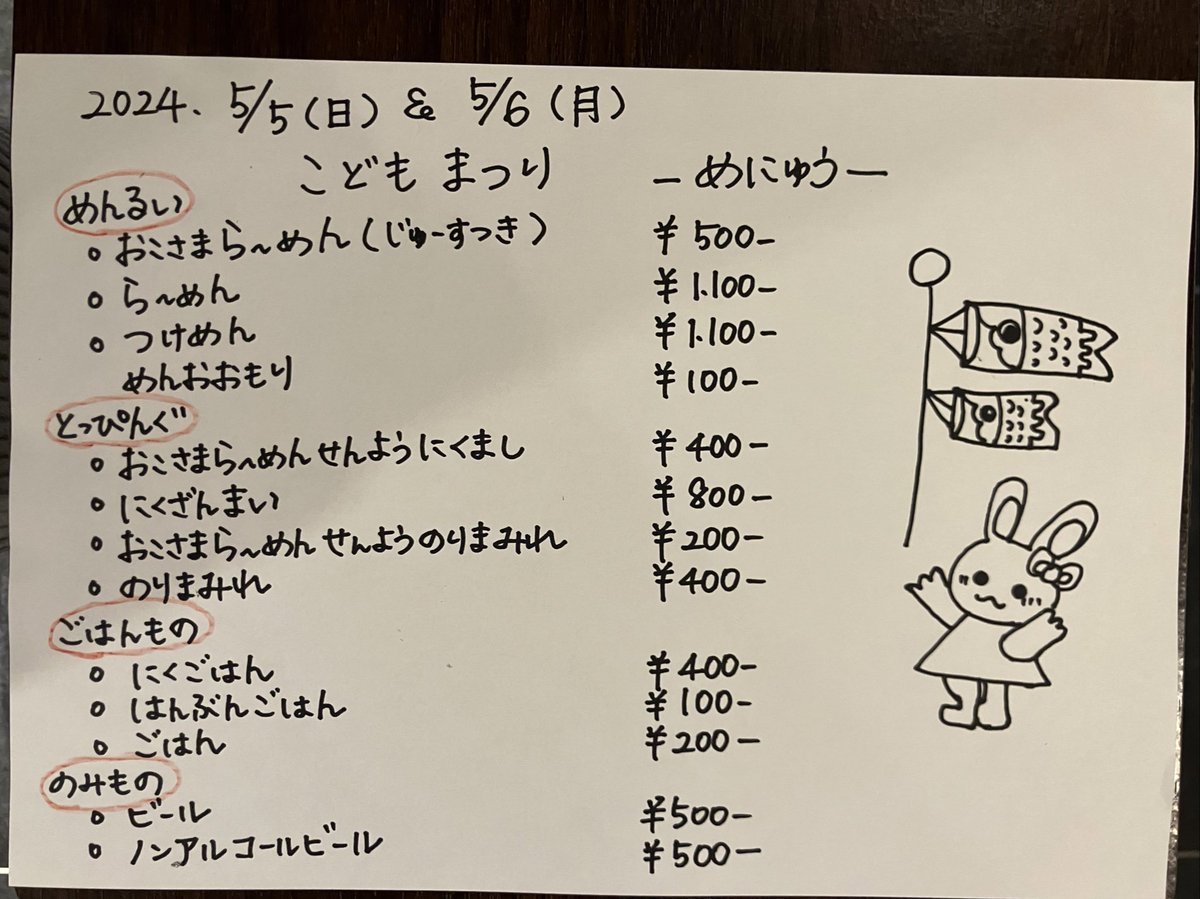 2024. 5/5(日) & 5/6(月)
こども まつり ーめにゅうー
めんるい
おこさまら~めん(じゅーすつき) ¥500-
ら~めん ¥1.100-
つけめん ¥1.100-
めんおおもり ¥100-
とっぴんぐ
おこさまら~めんせんようにくまし ¥400-
にくざんまい ¥800-
おこさまら~めんせんようのりまみれ ¥200-
のりまみれ ¥400-
ごはんもの
にくごはん ¥400-
はんぶんごはん ¥100-
ごはん ¥200-
のみもの
ビール ¥500-
ノンアルコールビール ¥500-